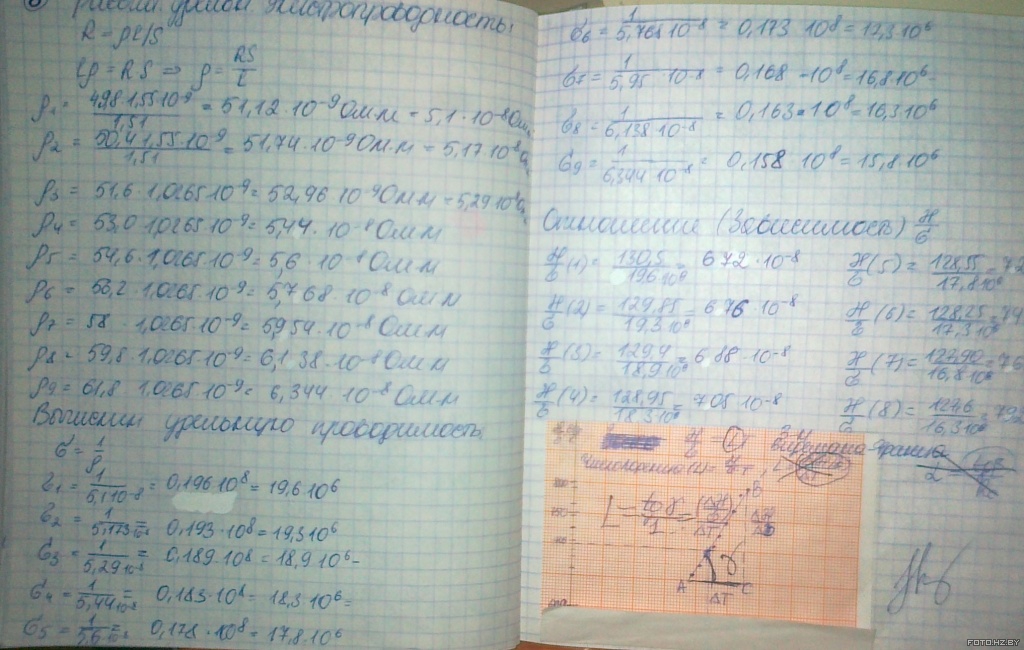 удельн электропроводность:
R = ρl/S
lρ = RS ⇒ ρ = RS/l
ρ1 = 49,8·1,55·10⁻⁹/1,51 = 51,12·10⁻⁹ Ом м = 5,1·10⁻⁸ Ом
ρ2 = 50,4·1,55·10⁻⁹/1,51 = 51,74·10⁻⁹ Ом м = 5,17·10⁻⁸
ρ3 = 51,6·1,0265·10⁻⁹ = 52,96·10⁻⁹ Ом м = 5,29·10⁻⁸
ρ4 = 53,0·1,0265·10⁻⁹ = 5,44·10⁻⁸ Ом м
ρ5 = 54,6·1,0265·10⁻⁹ = 5,6·10⁻⁸ Ом м
ρ6 = 56,2·1,0265·10⁻⁹ = 5,768·10⁻⁸ Ом м
ρ7 = 58·1,0265·10⁻⁹ = 5954·10⁻⁸ Ом м
ρ8 = 59,8·1,0265·10⁻⁹ = 6,138·10⁻⁸ Ом м
ρ9 = 61,8·1,0265·10⁻⁹ = 6,344·10⁻⁸ Ом м
проводимость
σ = 1/ρ
σ1 = 1/5,1·10⁻⁸ = 0,196·10⁸ = 19,6·10⁶
σ2 = 1/5,173·10⁻⁸ = 0,193·10⁸ = 19,3·10⁶
σ3 = 1/5,29·10⁻⁸ = 0,189·10⁸ = 18,9·10⁶
σ4 = 1/5,44·10⁻⁸ = 0,183·10⁸ = 18,3·10⁶
σ5 = 1/5,6·10⁻⁸ = 0,178·10⁸ = 17,8·10⁶
σ6 = 1/5,768·10⁻⁸ = 0,173·10⁸ = 17,3·10⁶
σ7 = 1/5,95·10⁻⁸ = 0,168·10⁸ = 16,8·10⁶
σ8 = 1/6,138·10⁻⁸ = 0,163·10⁸ = 16,3·10⁶
σ9 = 1/6,344·10⁻⁸ = 0,158·10⁸ = 15,8·10⁶
Отношение (Зависимость) ϰ/σ
ϰ/σ (1) = 130,5/19,6·10⁶ = 672·10⁻⁸
ϰ/σ (2) = 129,85/19,3·10⁶ = 676·10⁻⁸
ϰ/σ (3) = 129,4/18,9·10⁶ = 688·10⁻⁸
ϰ/σ (4) = 128,95/18,3·10⁶ = 705·10⁻⁸
ϰ/σ (5) = 128,55/17,8·10⁶ = 72
ϰ/σ (6) = 128,25/17,3·10⁶ = 74
ϰ/σ (7) = 127,90/16,8·10⁶ = 76
ϰ/σ (8) = 127,6/16,3·10⁶
Видемана-Франца
L = tg γ/1 =
B
γ
A C
ΔT
FOTO.HZ.BY